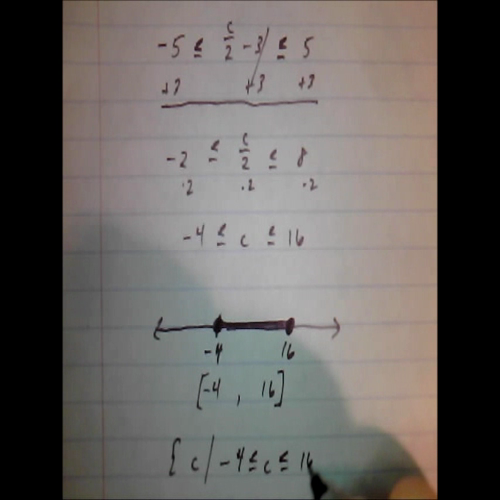 -5 ≤ c/2 - 3 ≤ 5
+3 +3 +3
-2 ≤ c/2 ≤ 8
·2 ·2 ·2
-4 ≤ c ≤ 16
-4 16
[-4 , 16]
{ c | -4 ≤ c ≤ 16